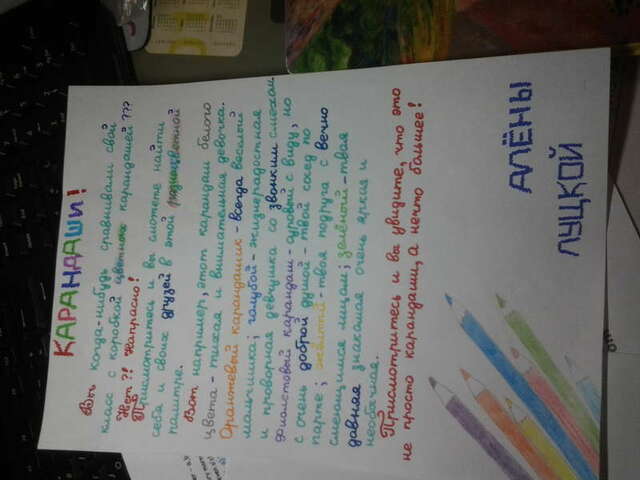 КАРАНДАШИ!
Вы когда-нибудь сравнивали свой
класс с коробкой цветных карандашей???
Нет?! Напрасно!
Присмотритесь и вы сможете найти
себя и своих друзей в этой разноцветной
палитре.
Вот например, этот карандаш белого
цвета - тихая и внимательная девочка.
Оранжевый карандашик - всегда весёлый
мальчишка; голубой - жизнерадостная
и проворная девчушка со звонким смехом;
фиолетовый карандаш - суровый с виду, но
с очень доброй душой - твой сосед по
парте; жёлтый - твоя подруга с вечно
смеющимся лицом; зелёный - твоя
давняя знакомая очень яркая и
необычная.
Присмотритесь и вы увидите, что это
не просто карандаши, а нечто большее!
АЛЁНЫ
ЛУЦКОЙ